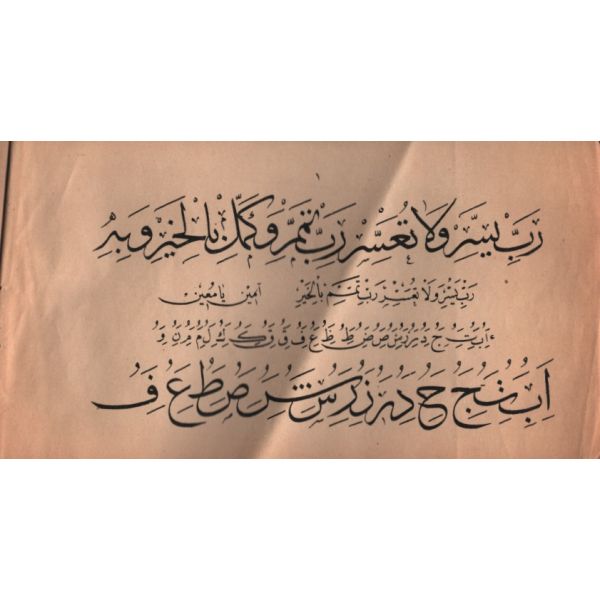 ١
رَبِّ يَسِّرْ وَلَا تُعَسِّرْ رَبِّ تَمِّمْ وَكَمِّلْ بِالْخَيْرِ وَبِهِ
رَبِّ يَسِّرْ وَلَا تُعَسِّرْ رَبِّ تَمِّمْ بِالْخَيْرِ آمين يا مُعين
ا ب ت ج د ر ز س ص ض ط ظ ع ف ق ك ل م ن و
ا ب ث ج ح د ر ز س ش ص ط ع ف